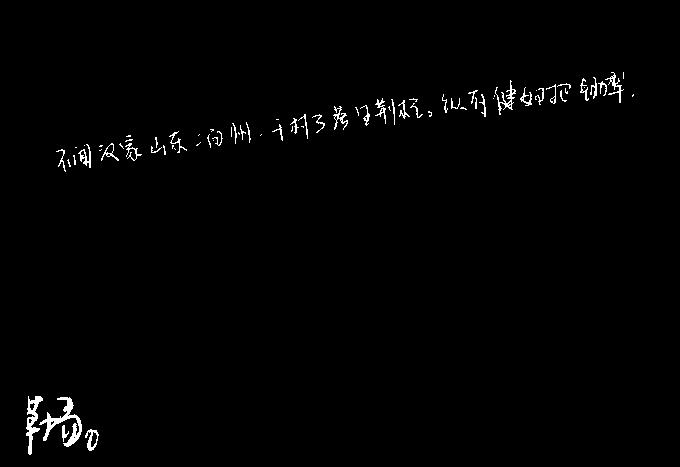 不闻汉家山东二百州.千村万落生荆杞。纵有健妇把锄犁.